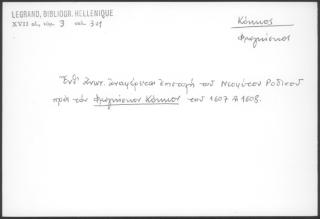 LEGRAND, BIBLIOGR. HELLENIQUE
XVII αἰ., τόμ. 3 σελ. 301
Κόκκος
Φραγκίσκος
Ἐνθ' ἀνωτ. ἀναφέρεται ἐπιστολὴ τοῦ Νεοφύτου Ροδινοῦ
πρὸς τὸν Φραγκίσκον Κόκκον τοῦ 1607 ἢ 1608.